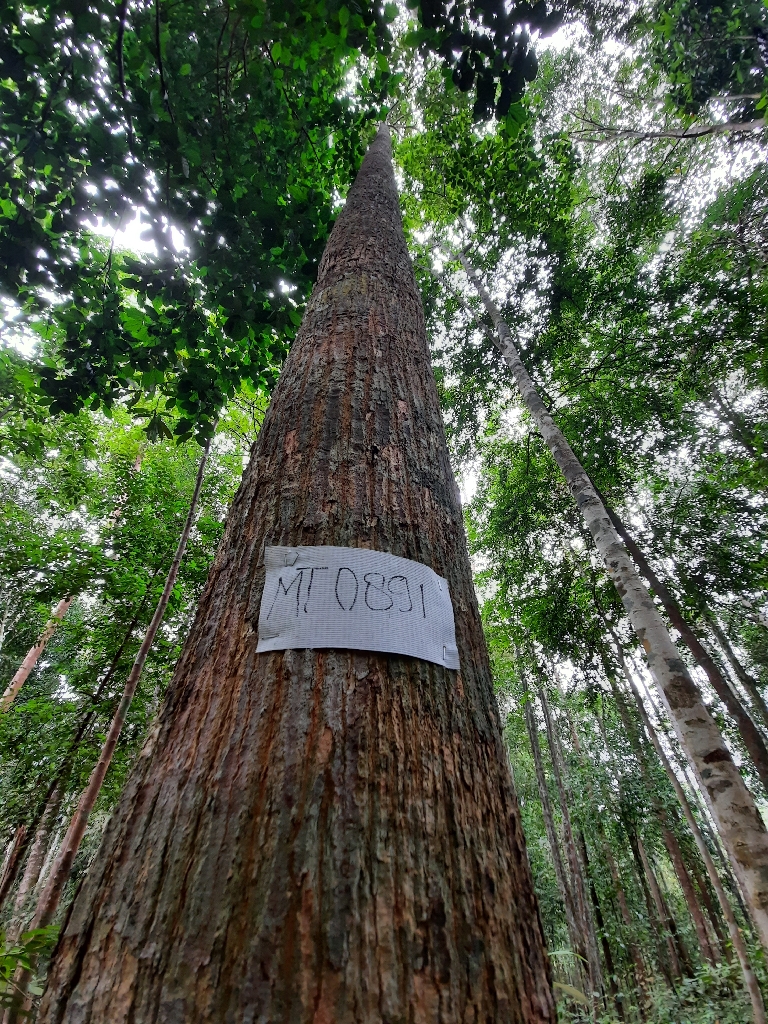 MT 0891